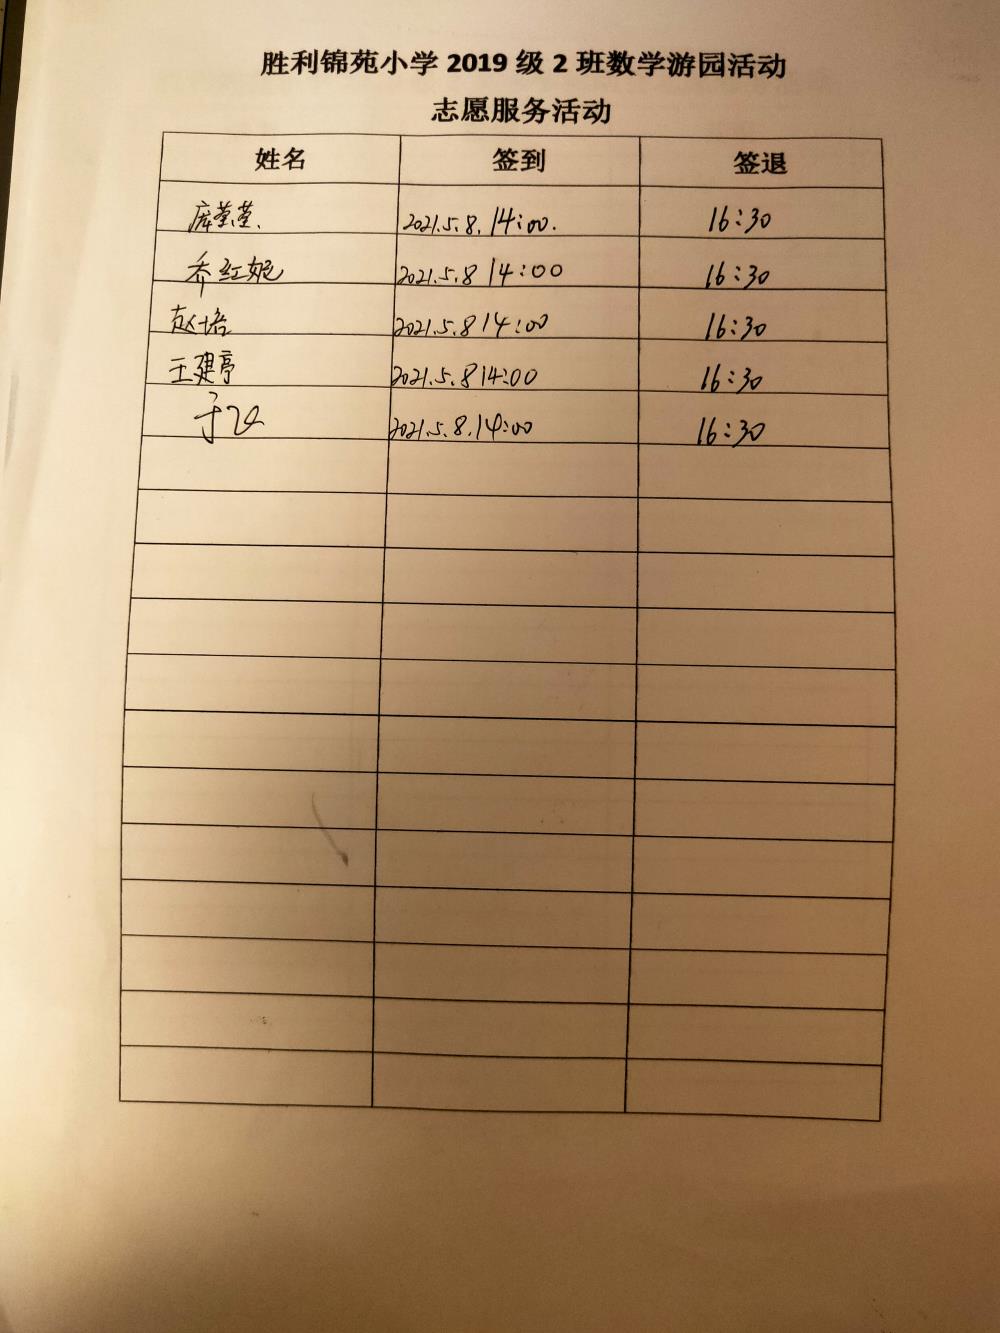 胜利锦苑小学 2019 级 2 班数学游园活动
志愿服务活动
姓名 签到 签退
2021.5.8. 14:00. 16:30
乔红妮 2021.5.8 14:00 16:30
赵培 2021.5.8 14:00 16:30
王建亭 2021.5.8 14:00 16:30
2021.5.8. 14:00 16:30